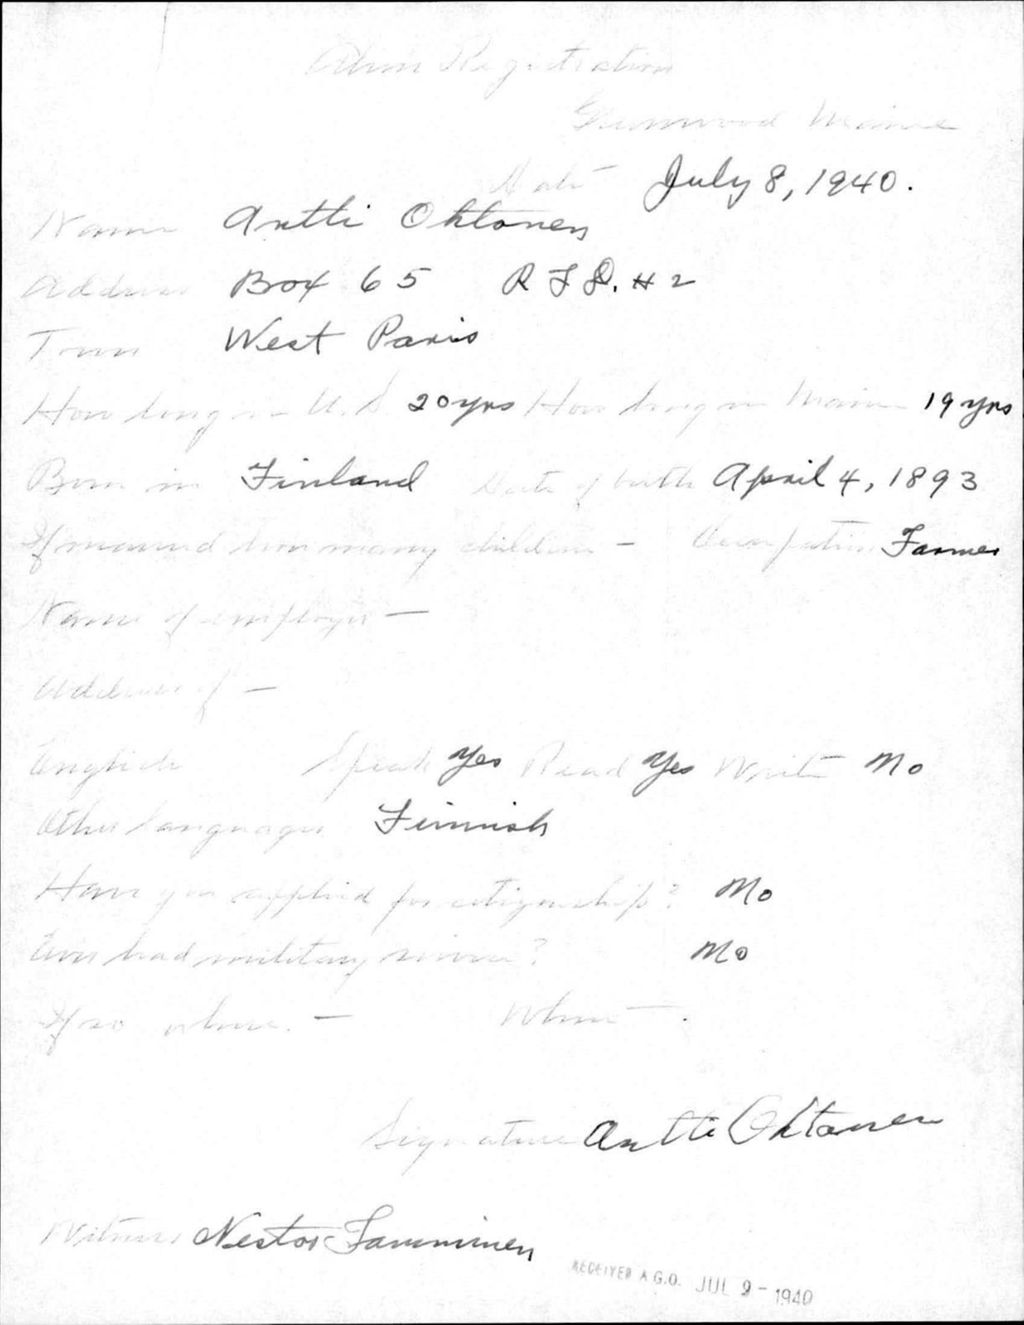 Alien Registration
Greenwood Maine
Date July 8, 1940.
Name Antti Ohtonen
Address Box 65 R F D. #2
Town West Paris
How long in U.S. 20 yrs How long in Maine 19 yrs
Born in Finland Date of birth April 4, 1893
If married how many children - Occupation Farmer
Name of employer -
Address of -
English Speak Yes Read Yes Write No
Other languages Finnish
Have you applied for citizenship? No
Ever had military service? No
If so where. - When - .
Signature Antti Ohtonen
Witness Nestor Tamminen
RECEIVED A.G.O. JUL 9 - 1940